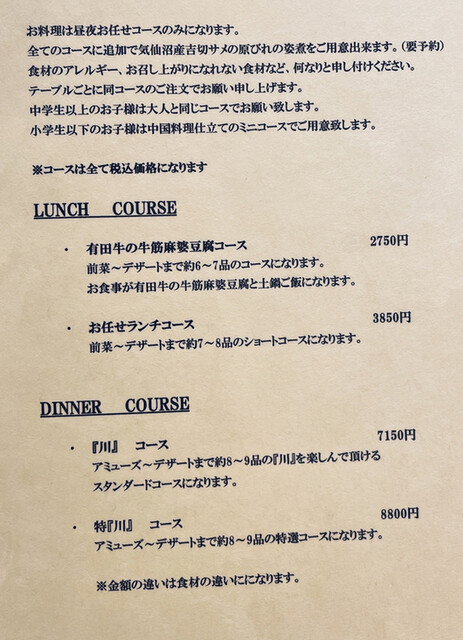 お料理は昼夜お任せコースのみになります。
全てのコースに追加で気仙沼産吉切サメの原びれの姿煮をご用意出来ます。(要予約)
食材のアレルギー、お召し上がりになれない食材など、何なりと申し付けください。
テーブルごとに同コースのご注文でお願い申し上げます。
中学生以上のお子様は大人と同じコースでお願い致します。
小学生以下のお子様は中国料理仕立てのミニコースでご用意致します。
※コースは全て税込価格になります
LUNCH COURSE
・ 有田牛の牛筋麻婆豆腐コース 2750円
前菜〜デザートまで約6〜7品のコースになります。
お食事が有田牛の牛筋麻婆豆腐と土鍋ご飯になります。
・ お任せランチコース 3850円
前菜〜デザートまで約7〜8品のショートコースになります。
DINNER COURSE
・ 『川』 コース 7150円
アミューズ〜デザートまで約8〜9品の『川』を楽しんで頂ける
スタンダードコースになります。
・ 特『川』 コース 8800円
アミューズ〜デザートまで約8〜9品の特選コースになります。
※金額の違いは食材の違いにになります。